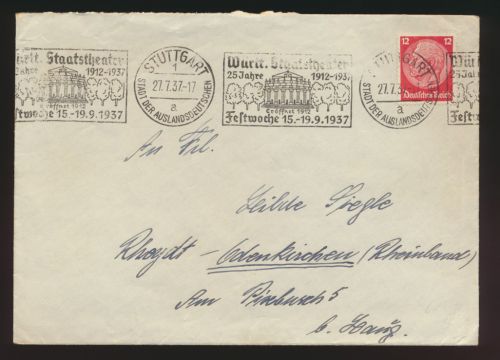 Württ. Staatstheater
25 Jahre 1912-1937
Eröffnet 1912
Festwoche 15.-19.9.1937
STUTTGART
1
27.7.37-17
a
STADT DER AUSLANDSDEUTSCHEN
Württ. Staatstheater
25 Jahre 1912-1937
Eröffnet 1912
Festwoche 15.-19.9.1937
STUTTGART
27.7.37
a
STADT DER AUSLANDSDEUTSCHEN
12 12
Deutsches Reich
Württ.
25 Jahre
Festwoche
An Frl.
Siegle
Rheydt-Odenkirchen (Rheinland)
Am 5
b.